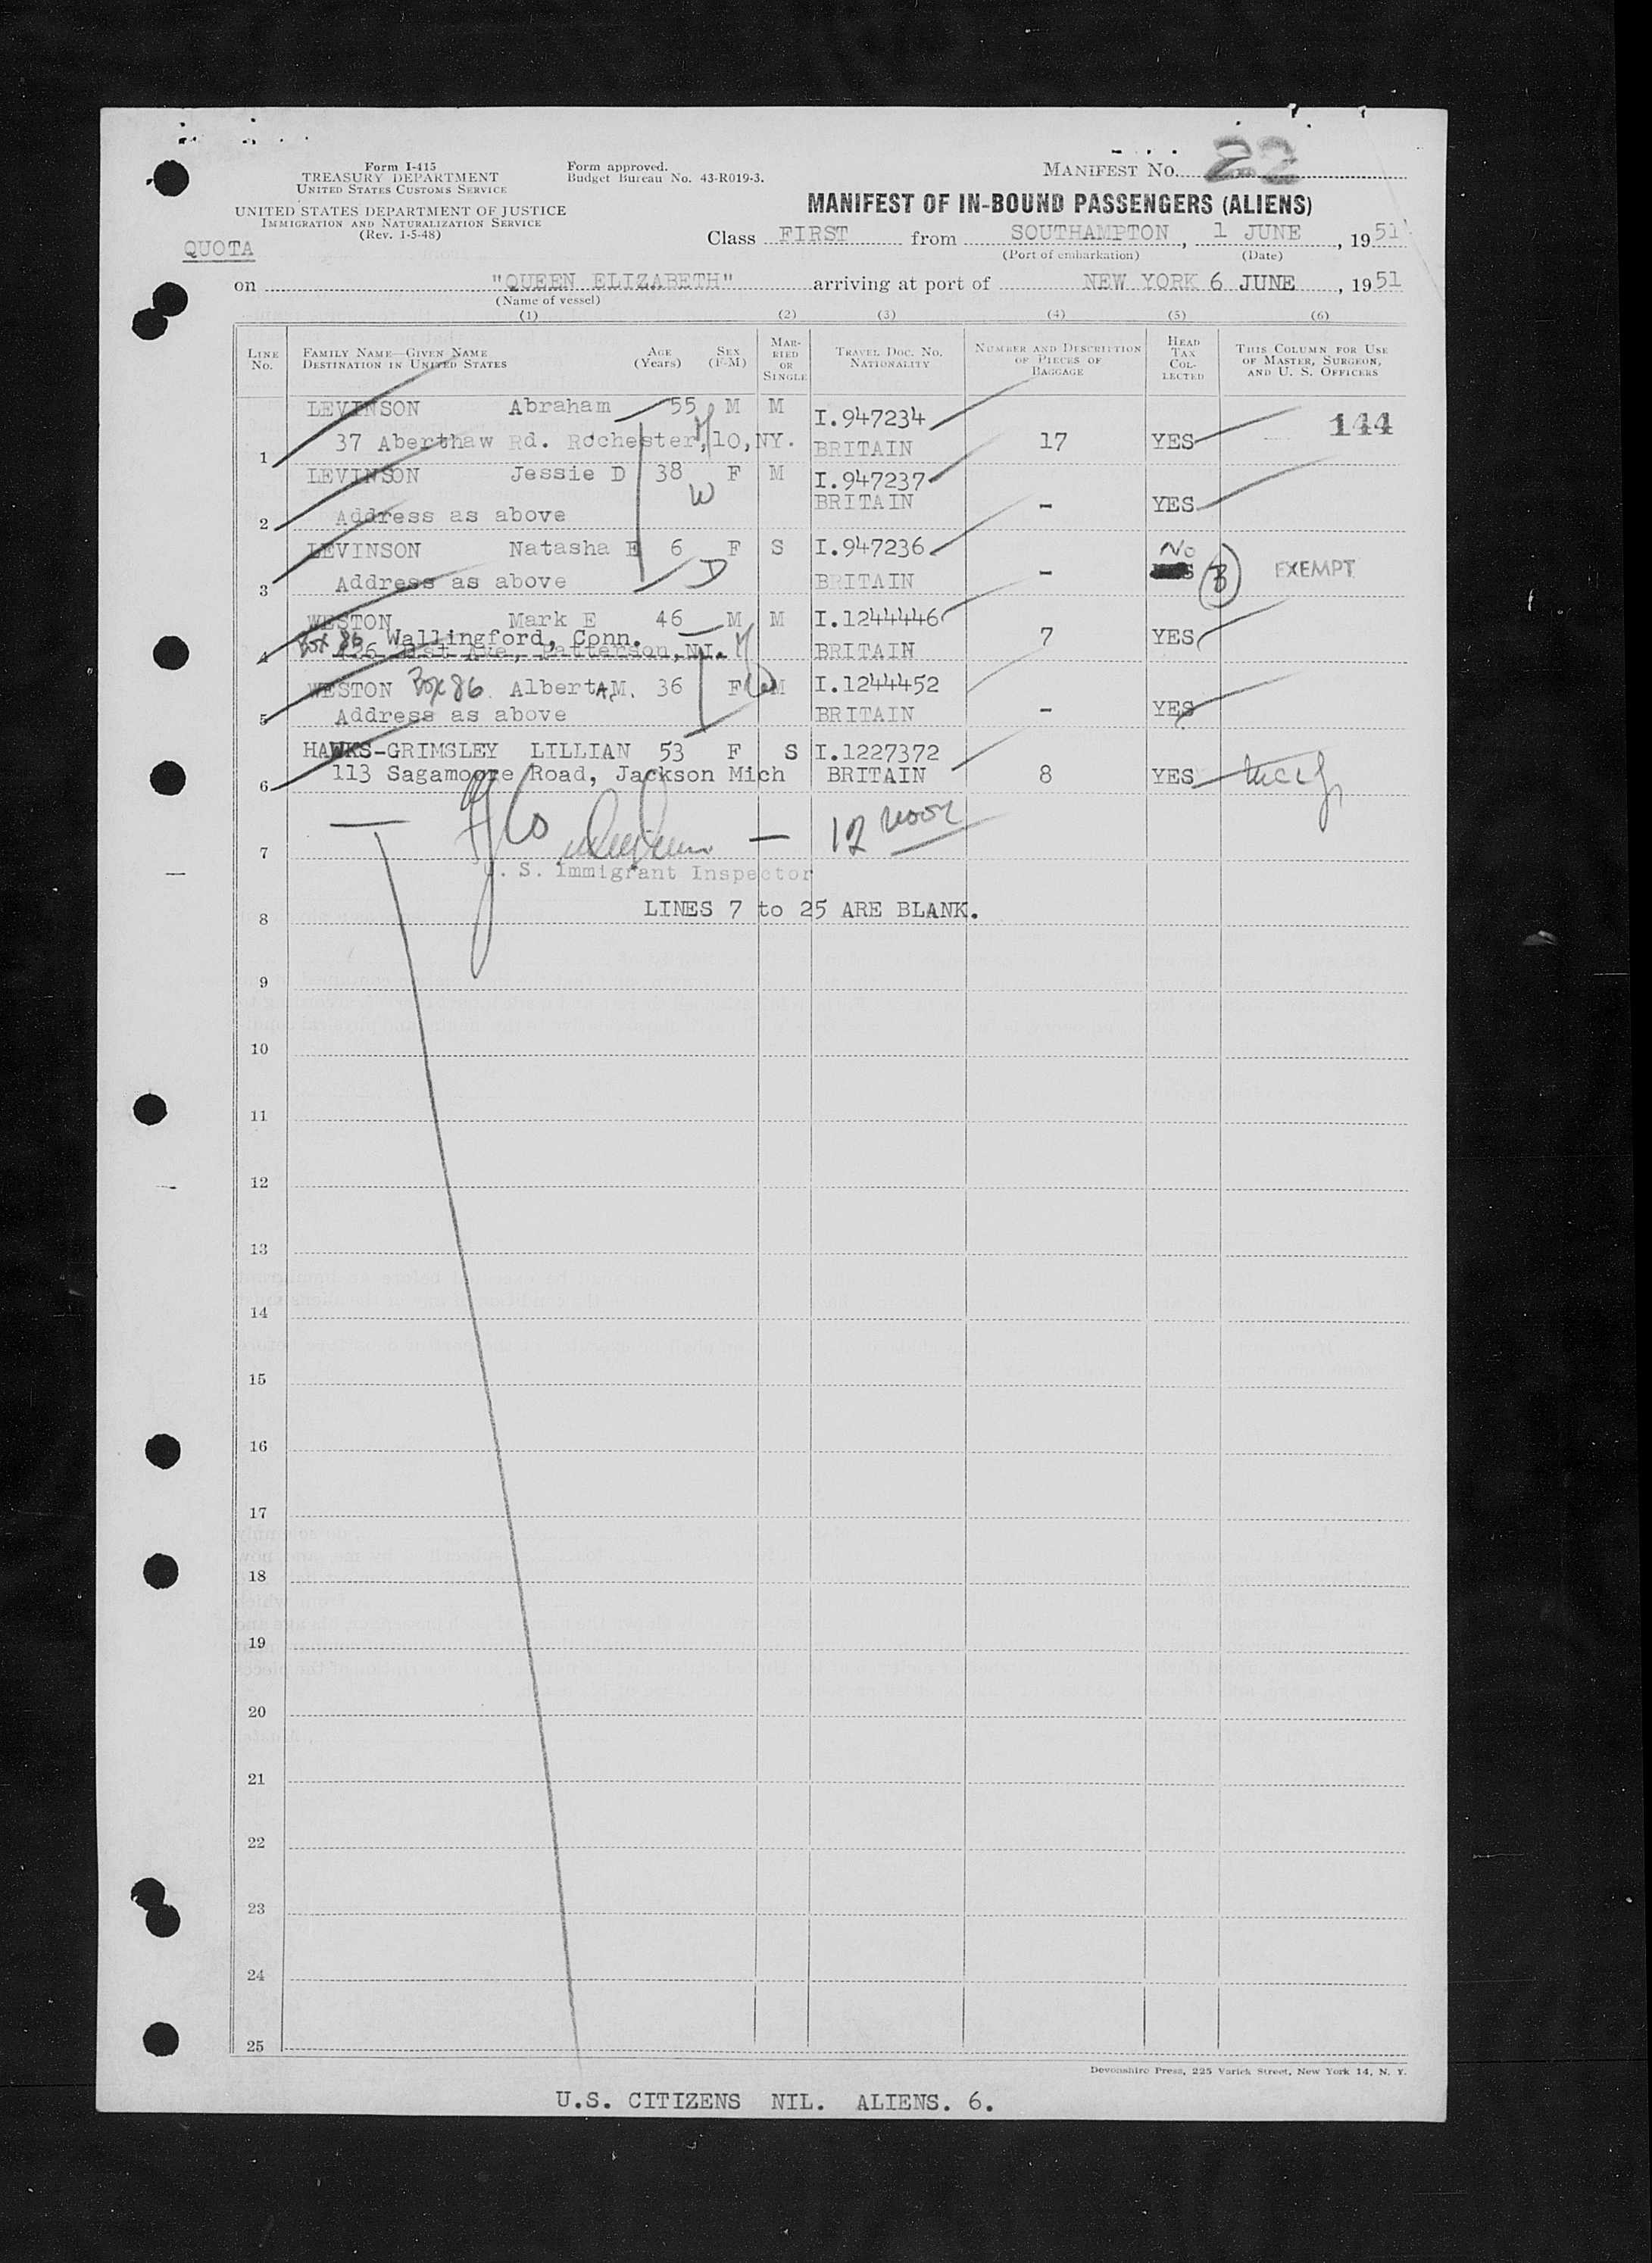 Form I-415
TREASURY DEPARTMENT
UNITED STATES CUSTOMS SERVICE
UNITED STATES DEPARTMENT OF JUSTICE
IMMIGRATION AND NATURALIZATION SERVICE
(Rev. 1-5-48)
Form approved.
Budget Bureau No. 43-R019-3.
MANIFEST No. 22
MANIFEST OF IN-BOUND PASSENGERS (ALIENS)
QUOTA
Class FIRST from SOUTHAMPTON, 1 JUNE, 1951
(Port of embarkation) (Date)
on "QUEEN ELIZABETH" arriving at port of NEW YORK 6 JUNE, 1951
(Name of vessel)
(1) (2) (3) (4) (5) (6)
LINE No. FAMILY NAME—GIVEN NAME DESTINATION IN UNITED STATES AGE (Years) SEX (F-M) MARRIED OR SINGLE TRAVEL DOC. NO. NATIONALITY NUMBER AND DESCRIPTION OF PIECES OF BAGGAGE HEAD TAX COLLECTED THIS COLUMN FOR USE OF MASTER, SURGEON, AND U. S. OFFICERS
LEVINSON Abraham 55 M M I.947234 144
1 37 Aberthaw Rd. Rochester, 10, NY. H BRITAIN 17 YES
LEVINSON Jessie D 38 F M I.947237
W BRITAIN - YES
2 Address as above
LEVINSON Natasha E 6 F S I.947236 No EXEMPT
3 Address as above D BRITAIN -
WESTON Mark E 46 M M I.1244446
Box 86 Wallingford, Conn. H 7 YES
4 Ave, Patterson, NJ. BRITAIN
WESTON Box 86 Albert A, M. 36 F W M I.1244452
5 Address as above BRITAIN - YES
HAWKS-GRIMSLEY LILLIAN 53 F S I.1227372
6 113 Sagamore Road, Jackson Mich BRITAIN 8 YES
12 noon
7
U. S. Immigrant Inspector
LINES 7 to 25 ARE BLANK.
8
9
10
11
12
13
14
15
16
17
18
19
20
21
22
23
24
25
Devonshire Press, 225 Varick Street, New York 14, N. Y.
U.S. CITIZENS NIL. ALIENS. 6.